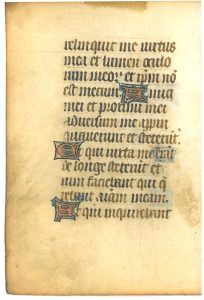 relinquit me virtus
mea et lumen oculo
rum meoꝝ et ip̄m nō
est mecum Amici
mei et proximi mei
adversum me appin
quaverunt et steterunt
Et qui iuxta me erāt
de longe steterūt et
vim faciebant qui q̄
rebant aīam meam.
Et qui inquirebant